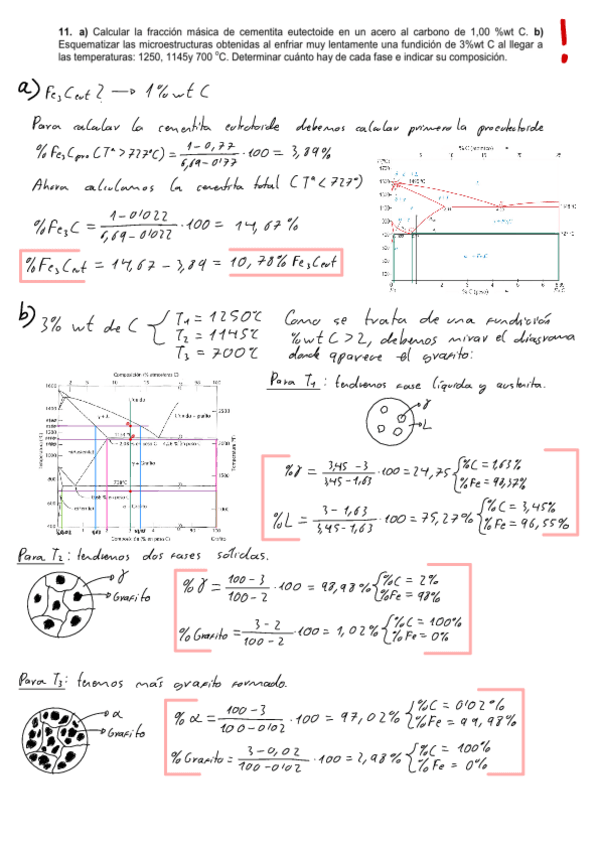 11. a) Calcular la fracción másica de cementita eutectoide en un acero al carbono de 1,00 %wt C. b)
Esquematizar las microestructuras obtenidas al enfriar muy lentamente una fundición de 3%wt C al llegar a
las temperaturas: 1250, 1145y 700 ºC. Determinar cuánto hay de cada fase e indicar su composición.
!
a) Fe3Ceut? → 1% wt C
Para calcular la cementita eutectoide debemos calcular primero la proeutectoide
%Fe3Cpro (Tª > 727ºC) = 1 - 0,77 / 6,69 - 0'77 · 100 = 3,89%
Ahora calculamos la cementita total (Tª < 727º)
%Fe3C = 1 - 0'022 / 6,69 - 0'022 · 100 = 14,67%
%Fe3Ceut = 14,67 - 3,89 = 10,78% Fe3Ceut
b) 3% wt de C { T1 = 1250ºC
T2 = 1145ºC
T3 = 700ºC
Como se trata de una fundición
%wt C > 2, debemos mirar el diagrama
donde aparece el grafito:
Composición (% atómico C)
Temperatura (°C)
Composición (% en peso C)
Grafito
Para T1: tendremos fase líquida y austenita.
γ
L
%γ = 3,45 - 3 / 3,45 - 1,63 · 100 = 24,75 { %C = 1,63%
%Fe = 98,37%
%L = 3 - 1,63 / 3,45 - 1,63 · 100 = 75,27% { %C = 3,45%
%Fe = 96,55%
Para T2: tendremos dos fases sólidas.
γ
Grafito
%γ = 100 - 3 / 100 - 2 · 100 = 98,98% { %C = 2%
%Fe = 98%
%Grafito = 3 - 2 / 100 - 2 · 100 = 1,02% { %C = 100%
%Fe = 0%
Para T3: tenemos más grafito formado.
α
Grafito
%α = 100 - 3 / 100 - 0'02 · 100 = 97,02% { %C = 0'02%
%Fe = 99,98%
%Grafito = 3 - 0,02 / 100 - 0'02 · 100 = 2,98% { %C = 100%
%Fe = 0%